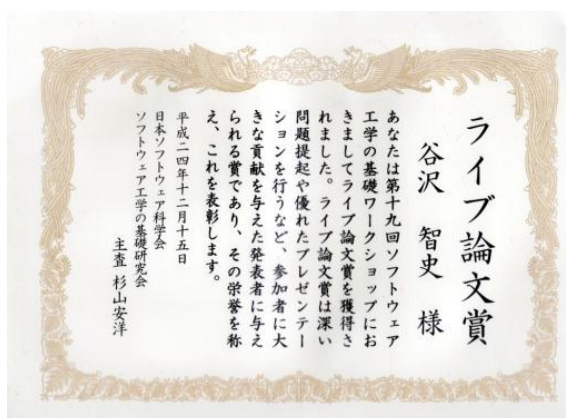 ライブ論文賞
谷沢 智史 様
あなたは第十九回ソフトウェア
工学の基礎ワークショップにお
きましてライブ論文賞を獲得さ
れました。ライブ論文賞は深い
問題提起や優れたプレゼンテー
ションを行うなど、参加者に大
きな貢献を与えた発表者に与え
られる賞であり、その栄誉を称
え、これを表彰します。
平成二四年十二月十五日
日本ソフトウェア科学会
ソフトウェア工学の基礎研究会
主査 杉山安洋